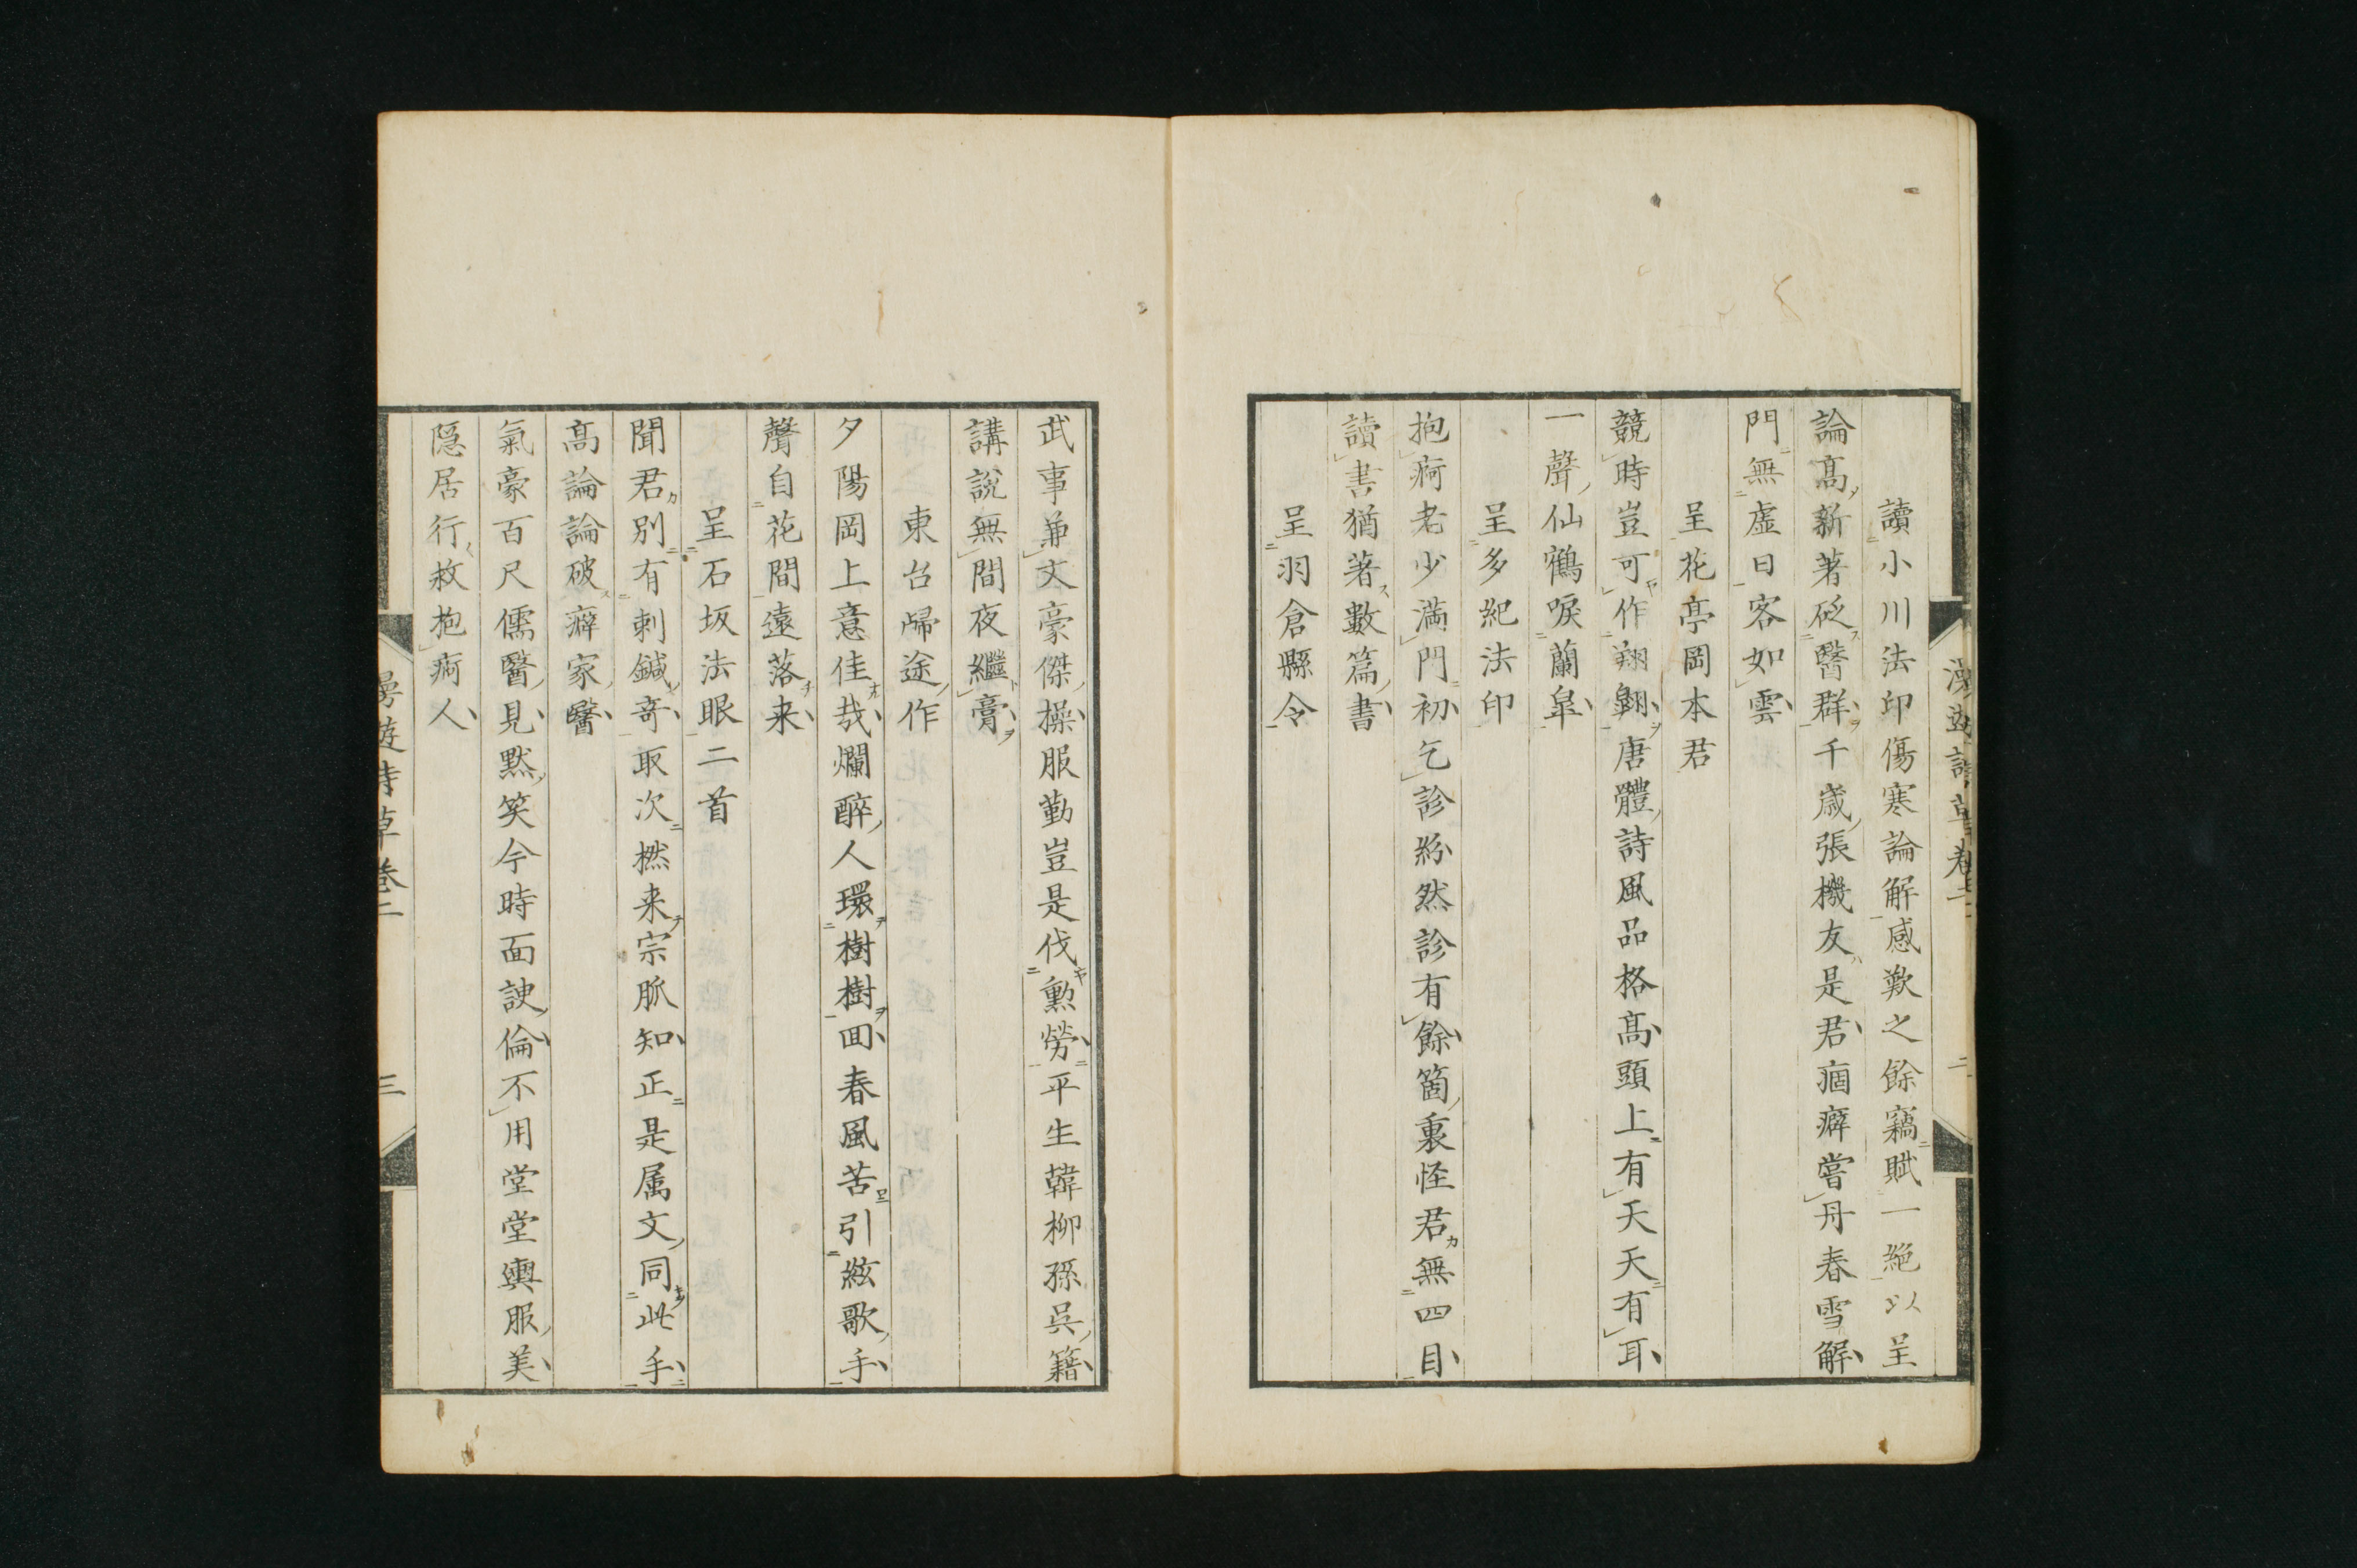 讀小川法印傷寒論解感歎之餘竊賦一絶以呈
論髙新著砭醫群千歳張機友是君痼癖嘗丹春雪解
門無虚日客如雲
呈花亭岡本君
競時豈可作翔翺唐體詩風品格髙頭上有天天有耳
一聲仙鶴唳蘭皐
呈多紀法印
抱痾老少満門初乞診紛然診有餘箇裏怪君無四目
讀書猶著數篇書
呈羽倉縣令
二
武事兼文豪傑操服勤豈是伐勲勞平生韓柳孫呉籍
講說無間夜繼膏
東台歸途作
夕陽岡上意佳哉爛醉人環樹樹囬春風苦引絃歌手
聲自花間遠落来
呈石坂法眼二首
聞君別有刺鍼竒取次撚来宗脈知正是属文同此手
髙論論破癖家醫
氣豪百尺儒醫見黙笑今時面諛倫不用堂堂輿服美
隠居行救抱痾人
漫遊詩草巻二
三